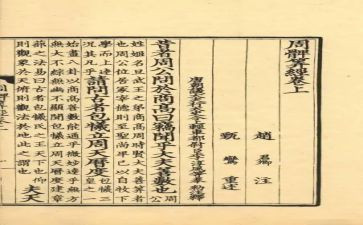 周髀算經卷上
趙君卿注
甄鸞重述
唐朝議大夫行太史令上輕車都尉臣李淳風等奉敕注釋
昔者周公問於商高曰竊聞乎大夫善數也周公
姓姬名旦武王之弟商高周時賢大夫善算者
也周公位居冢宰德則至聖尚卑己以自牧下
學而上達
況其凡乎
請問古者包犧立周天曆度
包犧三
皇之一
始畫八卦以商高善數能通乎微妙達乎無方
無大不綜無幽不顯聞包犧立周天曆度建章
蔀之法易曰古者包犧氏之王天下也仰
則觀象於天俯則觀法於地此之謂也
夫天